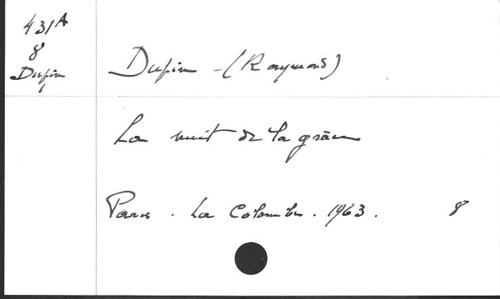 431A
8
Dupin
Dupin - (Raymond)
La nuit de la grâce
Paris . La Colombe . 1963 . 8